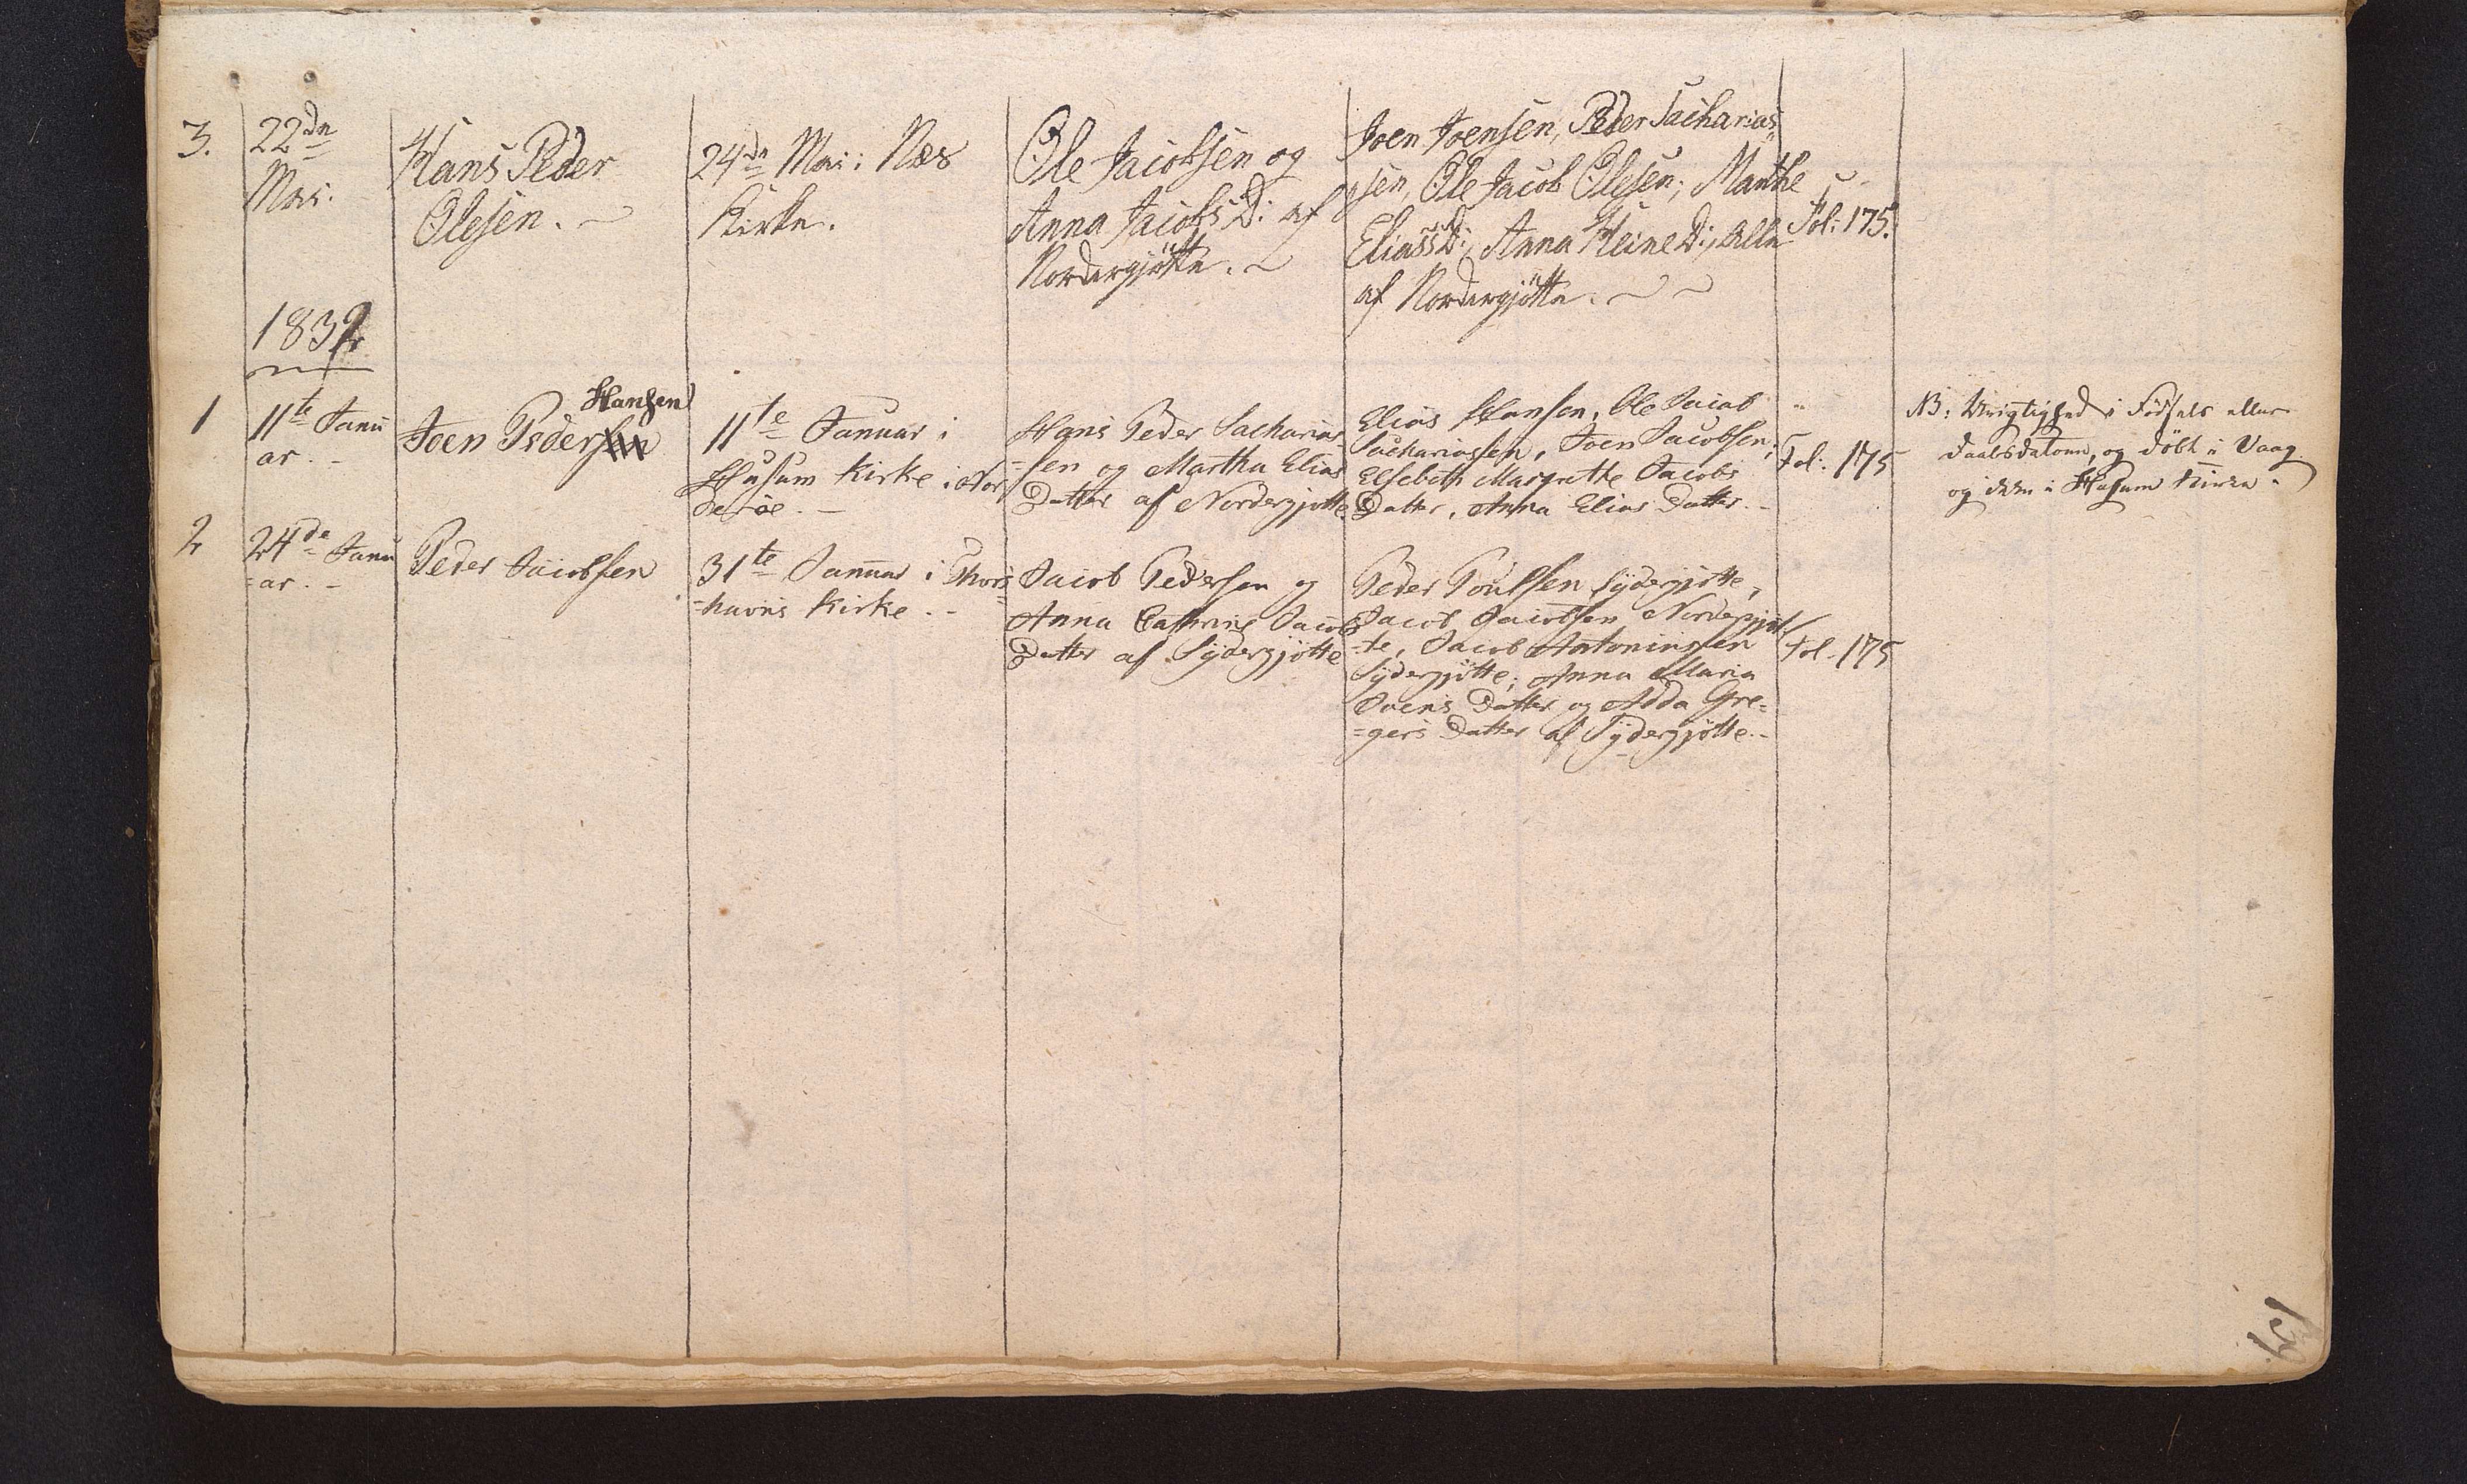 3.
22de
Mai.
Hans Peder
Olesen.
24de Mai i Næs
Kirke.
Ole Jacobsen og
Anna Jacobs D: af
Nordergjøtte.
Joen Joensen, Peder Sacharias
sen, Ole Jacob Olesen; Marthe
Eliass D:, Anna Heine D:, alle
af Nordergjøtte.
Fol: 175.
1832
1
11te Janu
ar. -
Hansen
Joen Peder
11te Januar i
Husum Kirke i Nor
derøe. -
Hans Peder Sacharias
=sen og Martha Elias
Datter af Nordergjøtte
Elias Hansen, Ole Jacob
Sachariassen, Joen Jacobsen;
Elsebeth Margrethe Jacobs
Datter, Anna Elias Datter. -
Fol: 175
NB: Urigtighed i Fødsels eller
Daabsdatoen, og døbt i Vaag
og ikke i Husum Kirke.
2
24de Janu
=ar. -
Peder Jacobsen
31te Januar i Thors
=havns Kirke. -
Jacob Pedersen og
Anna Cathrine Jacobs
Datter af Sydergjøtte
Peder Poulsen Sydergjøtte,
Jacob Jacobsen Nordegjøt
=te, Jacob Antoninssen
Sydergjøtte; Anna Maria
Joens Datter og Adda Gre=
=gers Datter af Sydergjøtte. -
Fol. 175